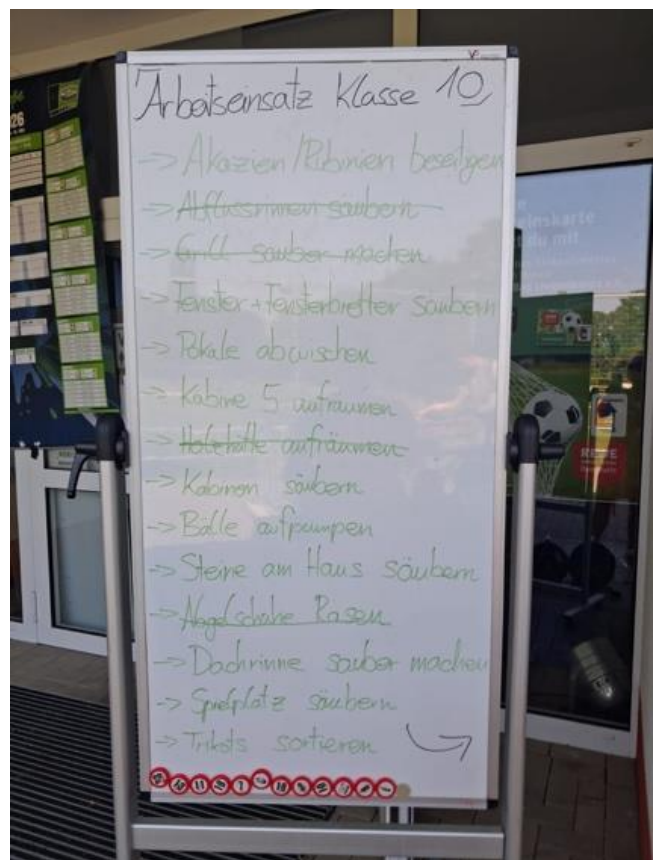 Arbeitseinsatz Klasse 10
-> Akazien/Robinien beseitigen
-> Abflussrinnen säubern
-> Grill sauber machen
-> Fenster + Fensterbretter säubern
-> Pokale abwischen
-> Kabine 5 aufräumen
-> Holzhütte aufräumen
-> Kabinen säubern
-> Bälle aufpumpen
-> Steine am Haus säubern
-> Nagelschuhe Rasen
-> Dachrinne sauber machen
-> Spielplatz säubern
-> Trikots sortieren
26
einskarte
du mit
REWE